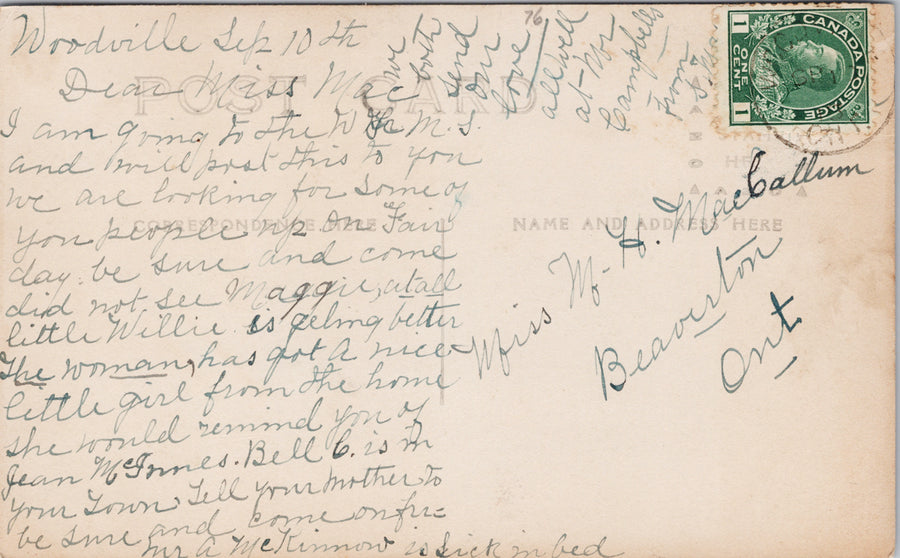 Woodville Sep 10th
Dear Miss Mac
I am going to the W.F.M.S.
and will post this to you
we are looking for some of
you people up on Fair
day. be sure and come
did not see Maggie, at all
little Willie is geling better
The woman, has got a nice
little girl from the home
she would remind you of
Jean McInnes. Bell C. is in
your Town Tell your mother to
be sure and come on fri=
Mr A McKinnow is sick in bed
we both
send
our
love
all well
at Mr
Campbells
from
76
POST CARD
CORRESPONDENCE HERE
NAME AND ADDRESS HERE
CANADA POSTAGE
1 ONE CENT 1
Miss M. H. MacCallum
Beaverton
Ont